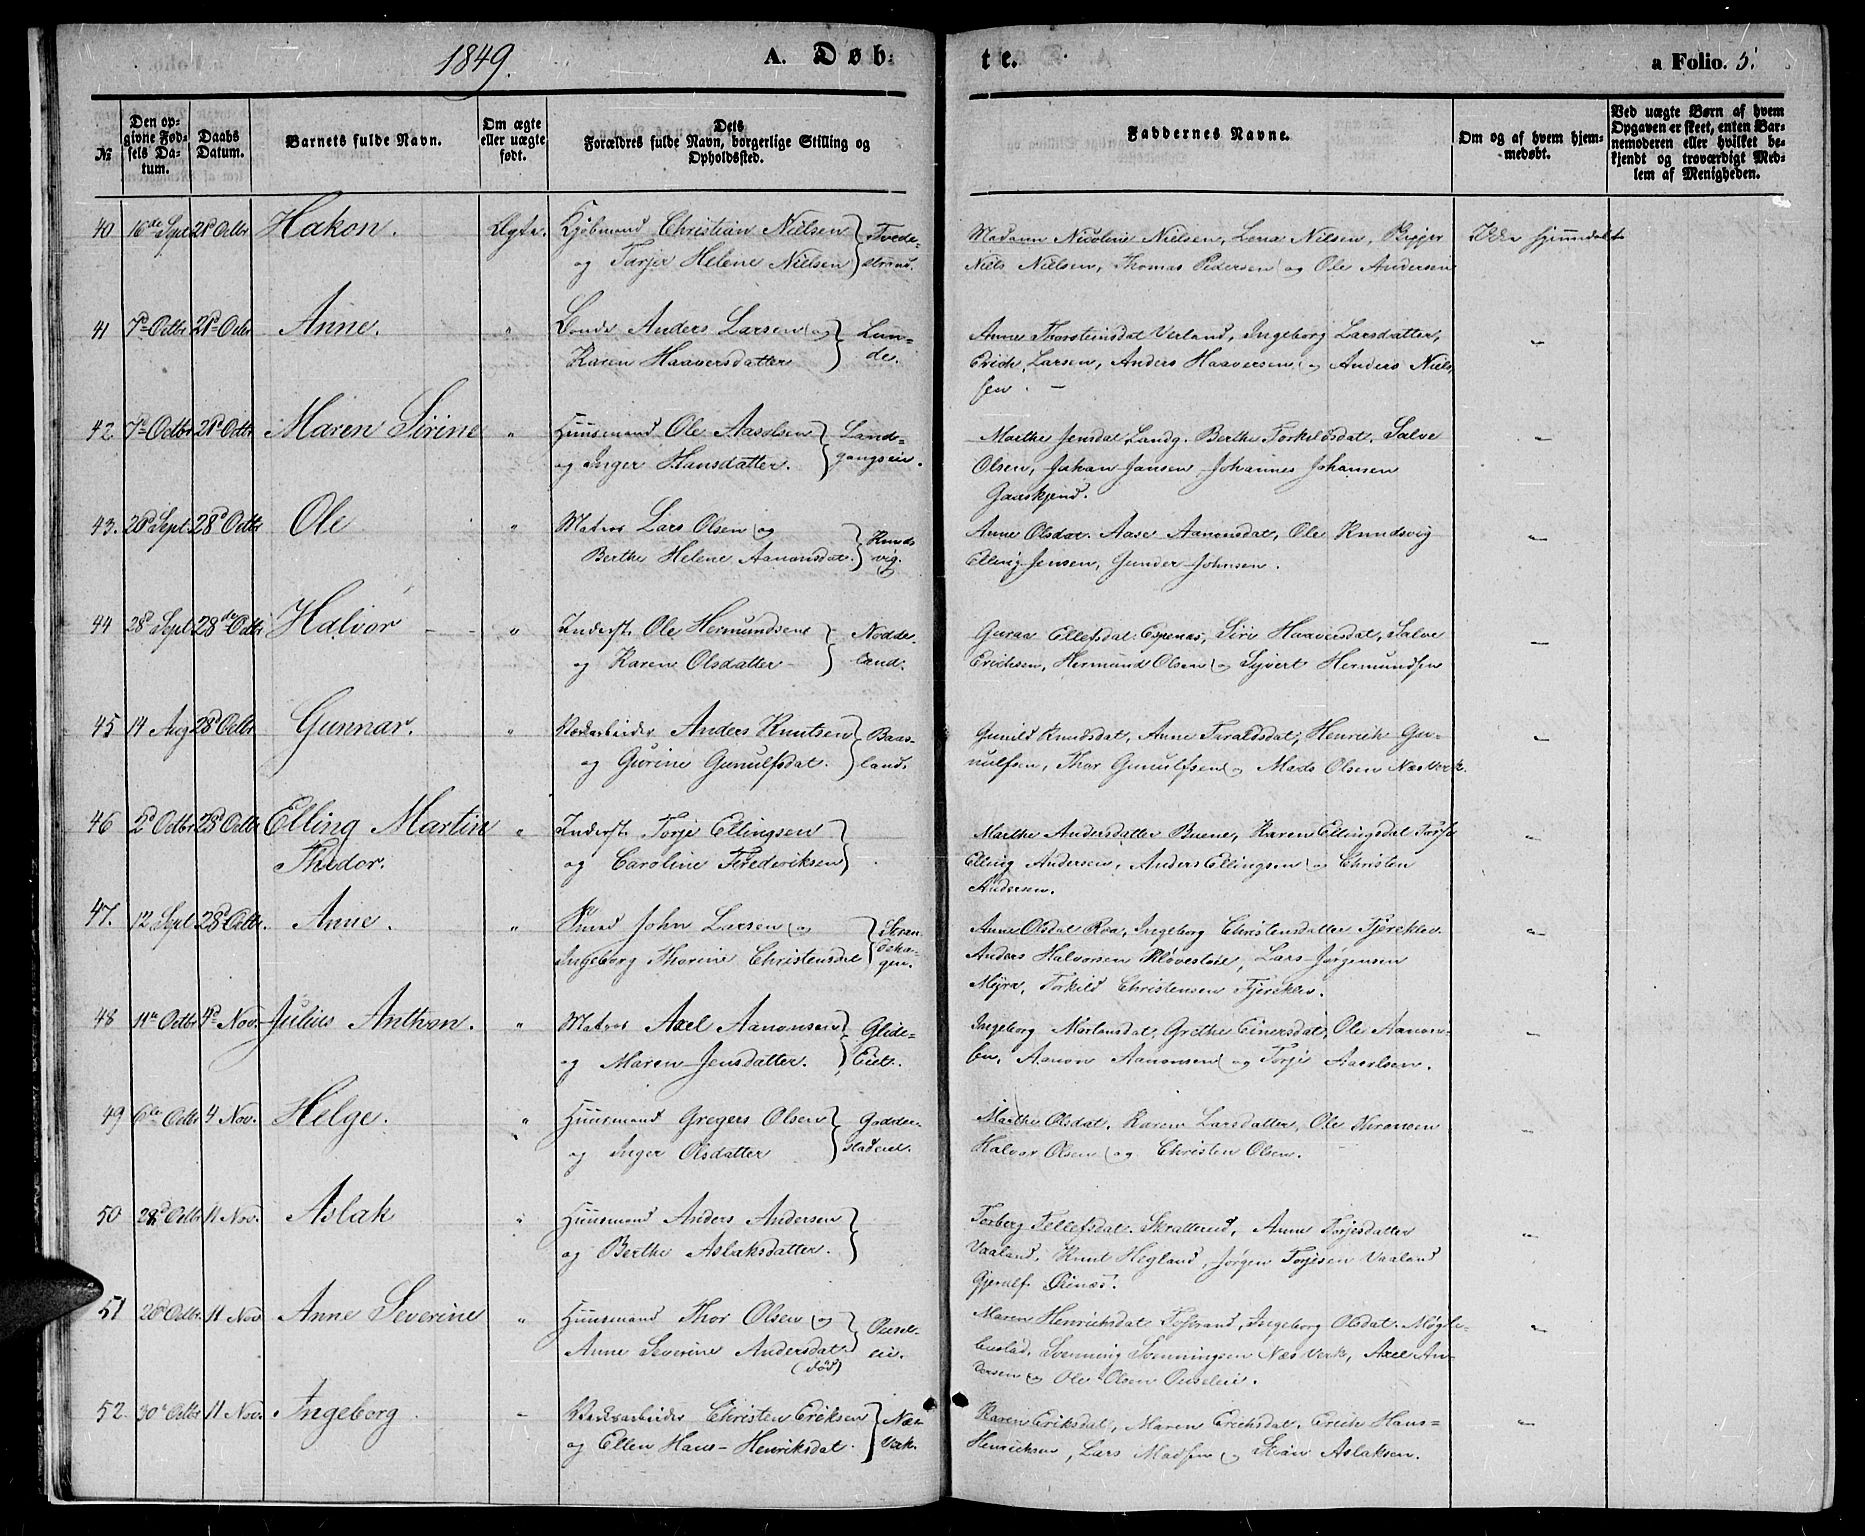 1849. A. Døb- te. a Folio. 5.
No
Den opgivne Fødsels Datum.
Daabs Datum.
Barnets fulde Navn.
Om ægte eller uægte født.
Dets Forældres fulde Navn, borgerlige Stilling og Opholdssted.
Faddernes Navne.
Om og af hvem hjemmedøbt.
Ved uægte Børn af hvem Opgaven er skeet, enten Barnemoderen eller hvilket bekjendt og troværdigt Medlem af Menigheden.
40 16de Sept 21d Octbr Hakon. Ægte. Kjøbmand Christian Nielsen Tvede-
og Tarjer Helene Nielsen strand.
Madame Nicoline Nielsen, Lena Nielsen, Ikke hjemmedøbt
Niels Nielsen, Thomas Pedersen og Ole Andersen
41 7d Octbr 21d Octbr Anne. " Bonde Anders Larsen og Lun-
Karen Haaversdatter de.
Anne Thorsteinsdat Verland, Ingeborg Larsdatter, "
Erich Larsen, Anders Haaversen og Anders Niel-
sen. -
42 7d Octbr 21d Octbr Maren Sirine " Huusmand Ole Aasolsen Land-
og Inger Hansdatter. gangseie.
Marthe Jensdat Landg. Berthe Torkildsdat. Salve "
Olsen, Johan Jansen Johannes Johansen
Gaaskjend.
43. 20d Sept. 28d Octbr Ole " Matros Lars Olsen og Knuds
Berthe Helene Aanonsdat. vig.
Anne Olsdat. Aase Aanonsdat, Ole Knudsvig "
Elling Jensen, Gunder Johnsen.
44 28d Sept 28de Octbr Halvor " Inderst. Ole Hermundsen Nodde-
og Karen Olsdatter land.
Guroe Ellefsdat Espenæs, Siri Haaversdat, Salve "
Erichsen, Hermund Olsen og Syvert Hermundsen
45 14 Aug 28d Octbr Gunnar. " Værksarbeider Anders Knutsen Baas-
og Gurine Gunulfsdat. land.
Gunild Knudsdat, Anne Taraldsdat, Henrich Gu- "
nulfsen, Thor Gunulfsen og Mads Olsen Næs Verk.
46 2d Octbr 28d Octbr Elling Martin " Inderst. Torje Ellingsen
Thedor. og Caroline Frederiksen
Marthe Andersdatter Buene, Karen Ellingsdat "
Elling Andersen, Anders Ellingsen og Christen
Andersen.
47. 12 Sept 28d Octbr. Anne. " John Larsen og
Ingeborg Thorine Christensdat
Anne Olsdat Roa, Ingeborg Christensdatter Fjerekles. "
Anders Halvorsen Lars Jørgensen
Myra, Torkild Christensen Fjerekles.
48 11te Octbr 4d Nov. Julius Anthon. " Matros Axel Aanonsen Glide-
og Maren Jensdatter. Eiet.
Ingeborg Morlansdat, Grethe Einersdat, Ole Aanon- "
sen, Aanon Aanonsen og Torje Aaselsen.
49 6te Octbr 4 Nov. Helge. " Huusmand Gregers Olsen
og Inger Olsdatter
Marthe Olsdat, Karen Larsdatter, Ole "
Halvor Olsen og Christen Olsen.
50 28d Octbr 11 Nov. Aslak " Huusmand Anders Andersen
og Berthe Aslaksdatter.
Torberg Tellefsdat. Skattereid, Anne Torjesdatter "
Vaaland. Knut Hegland, Jørgen Torjesen Vaaland
51 20d Octbr. 11 Nov Anne Severine " Huusmand Thor Olsen og Ousel-
Anne Severine Andersdat. eie.
(død)
Maren Henrichsdat Ingeborg Olsdat. Møgle- "
bustad. Svenning Svenningsen Næs Verk, Axel An-
dersen og Ole Olsen Ouseleie.
52. 30d Octbr 11 Nov. Ingeborg - Værksarbeider Christen Eriksen Næs
og Ellen Hans-Henriksdat. Værk.
Karen Eriksdat, Maren Erichsdat, Erich Hans- "
Henrichsen, Lars Madsen og Aslaksen.